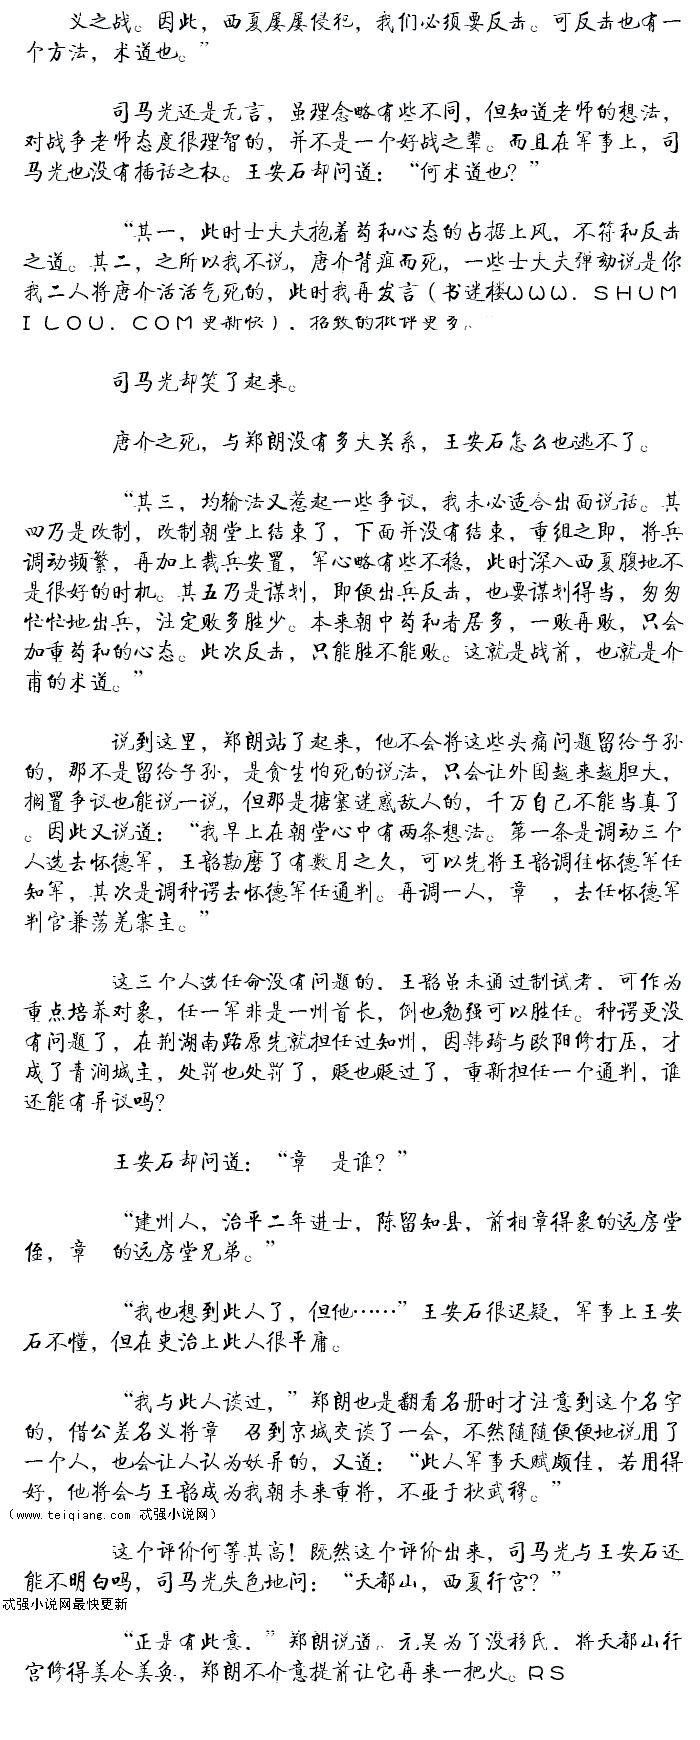 义之战。因此，西夏屡屡侵犯，我们必须要反击。可反击也有一
个方法，术道也。”
司马光还是无言，虽理念略有些不同，但知道老师的想法，
对战争老师态度很理智的，并不是一个好战之辈。而且在军事上，司
马光也没有插话之权。王安石却问道：“何术道也？”
“其一，此时士大夫抱着苟和心态的占据上风，不符和反击
之道。其二，之所以我不说，唐介背疽而死，一些士大夫弹劾说是你
我二人将唐介活活气死的，此时我再发言（书迷楼WWW．SHUM
ILOU．COM更新快），招致的批评更多。”
司马光却笑了起来。
唐介之死，与郑朗没有多大关系，王安石怎么也逃不了。
“其三，均输法又惹起一些争议，我未必适合出面说话。其
四乃是改制，改制朝堂上结束了，下面并没有结束，重组之即，将兵
调动频繁，再加上裁兵安置，军心略有些不稳，此时深入西夏腹地不
是很好的时机。其五乃是谋划，即便出兵反击，也要谋划得当，匆匆
忙忙地出兵，注定败多胜少。本来朝中苟和者居多，一败再败，只会
加重苟和的心态。此次反击，只能胜不能败。这就是战前，也就是介
甫的术道。”
说到这里，郑朗站了起来，他不会将这些头痛问题留给子孙
的，那不是留给子孙，是贪生怕死的说法，只会让外国越来越胆大，
搁置争议也能说一说，但那是搪塞迷惑敌人的，千万自己不能当真了
。因此又说道：“我早上在朝堂心中有两条想法。第一条是调动三个
人选去怀德军，王韶勘磨了有数月之久，可以先将王韶调往怀德军任
知军，其次是调种谔去怀德军任通判。再调一人，章　，去任怀德军
判官兼荡羌寨主。”
这三个人选任命没有问题的，王韶虽未通过制试考，可作为
重点培养对象，任一军非是一州首长，倒也勉强可以胜任。种谔更没
有问题了，在荆湖南路原先就担任过知州，因韩琦与欧阳修打压，才
成了青涧城主，处罚也处罚了，贬也贬过了，重新担任一个通判，谁
还能有异议吗？
王安石却问道：“章　是谁？”
“建州人，治平二年进士，陈留知县，前相章得象的远房堂
侄，章　的远房堂兄弟。”
“我也想到此人了，但他……”王安石很迟疑，军事上王安
石不懂，但在吏治上此人很平庸。
“我与此人谈过，”郑朗也是翻看名册时才注意到这个名字
的，借公差名义将章　召到京城交谈了一会，不然随随便便地说用了
一个人，也会让人认为妖异的，又道：“此人军事天赋颇佳，若用得
好，他将会与王韶成为我朝未来重将，不亚于狄武穆。”
（www.teiqiang.com 忒强小说网）
这个评价何等其高！既然这个评价出来，司马光与王安石还
能不明白吗，司马光失色地问：“天都山，西夏行宫？”
忒强小说网最快更新
“正是有此意，”郑朗说道。元昊为了没移氏，将天都山行
宫修得美仑美奂，郑朗不介意提前让它再来一把火。RS